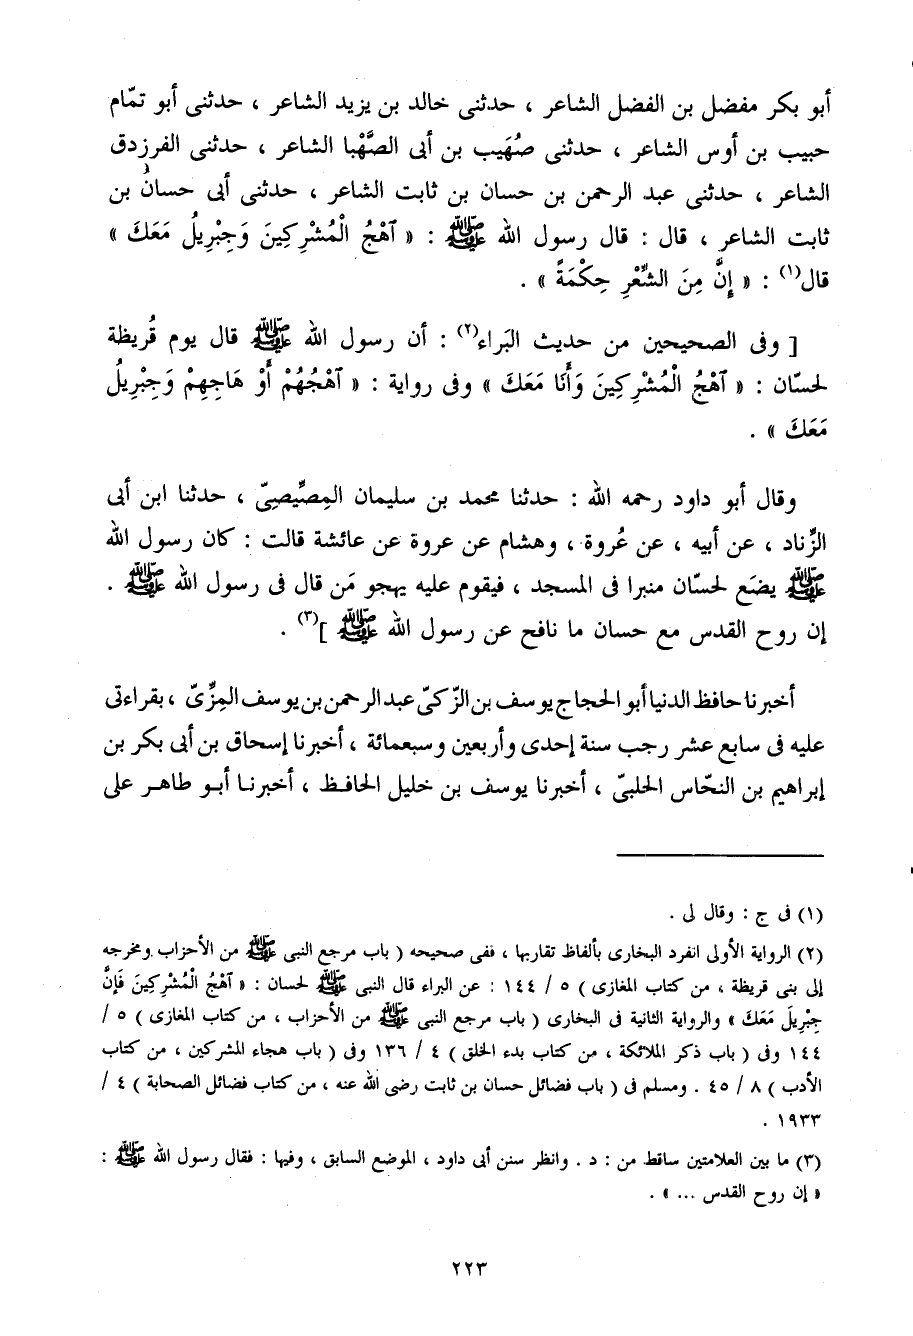 أبو بكر مفضل بن الفضل الشاعر ، حدثنى خالد بن يزيد الشاعر ، حدثنى أبو تمّام
حبيب بن أوس الشاعر ، حدثنى صُهَيب بن أبى الصَّهْبا الشاعر ، حدثنى الفرزدق
الشاعر ، حدثنى عبد الرحمن بن حسان بن ثابت الشاعر ، حدثنى أبى حسانُ بن
ثابت الشاعر ، قال : قال رسول الله ﷺ : « آهْجُ الْمُشْرِكِينَ وَجِبْرِيلُ مَعَكَ »
قال(١) : « إِنَّ مِنَ الشِّعْرِ حِكْمَةً » .
[ وفى الصحيحين من حديث البَراء(٢) : أن رسول الله ﷺ قال يوم قُريظة
لحسّان : « آهْجُ الْمُشْرِكِينَ وَأَنَا مَعَكَ » وفى رواية : « آهْجُهُمْ أَوْ هَاجِهِمْ وَجِبْرِيلُ
مَعَكَ » .
وقال أبو داود رحمه الله : حدثنا محمد بن سليمان المِصِّيصِىّ ، حدثنا ابن أبى
الزِّناد ، عن أبيه ، عن عُروة ، وهشام عن عروة عن عائشة قالت : كان رسول الله
ﷺ يضَع لحسّان منبرا فى المسجد ، فيقوم عليه يهجو مَن قال فى رسول الله ﷺ .
إن روح القدس مع حسان ما نافح عن رسول الله ﷺ ](٣) .
أخبرنا حافظ الدنيا أبو الحجاج يوسف بن الزّكىّ عبد الرحمن بن يوسف المِزِّىّ ، بقراءتى
عليه فى سابع عشر رجب سنة إحدى وأربعين وسبعمائة ، أخبرنا إسحاق بن أبى بكر بن
إبراهيم بن النحّاس الحلبىّ ، أخبرنا يوسف بن خليل الحافظ ، أخبرنا أبو طاهر على
(١) فى ج : وقال لى .
(٢) الرواية الأولى انفرد البخارى بألفاظ تقاربها ، ففى صحيحه ( باب مرجع النبى ﷺ من الأحزاب ومخرجه
إلى بنى قريظة ، من كتاب المغازى ) ٥ / ١٤٤ : عن البراء قال النبى ﷺ لحسان : « آهْجُ الْمُشْرِكِينَ فَإِنَّ
جِبْرِيلَ مَعَكَ » والرواية الثانية فى البخارى ( باب مرجع النبى ﷺ من الأحزاب ، من كتاب المغازى ) ٥ /
١٤٤ وفى ( باب ذكر الملائكة ، من كتاب بدء الخلق ) ٤ / ١٣٦ وفى ( باب هجاء المشركين ، من كتاب
الأدب ) ٨ / ٤٥ . ومسلم فى ( باب فضائل حسان بن ثابت رضى الله عنه ، من كتاب فضائل الصحابة ) ٤ /
١٩٣٣ .
(٣) ما بين العلامتين ساقط من : د . وانظر سنن أبى داود ، الموضع السابق ، وفيها : فقال رسول الله ﷺ :
« إن روح القدس ... » .
٢٢٣